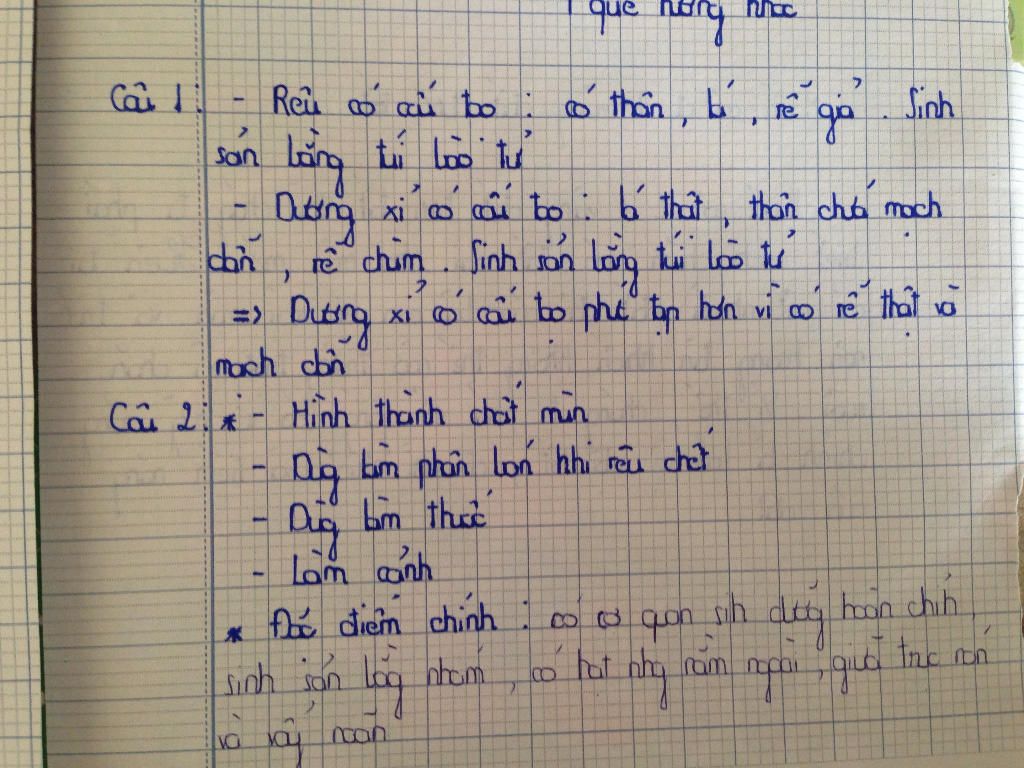 quê hương
Câu 1: - Rêu có cấu tạo : có thân, lá, rễ giả. Sinh
sản bằng túi bào tử
- Dương xỉ có cấu tạo : lá thật, thân chứa mạch
dẫn, rễ chùm. Sinh sản bằng túi bào tử
=> Dương xỉ có cấu tạo phức tạp hơn vì có rễ thật và
mạch dẫn
Câu 2: * - Hình thành chất mùn
- Dùg làm phân bón khi rêu chết
- Dùg làm thuốc
- Làm cảnh
* Đặc điểm chính : có cơ quan sih dưỡg hoàn chỉh,
sinh sản bằg , có hạt nhg nằm ngoài, giữa trục
và vảy noãn